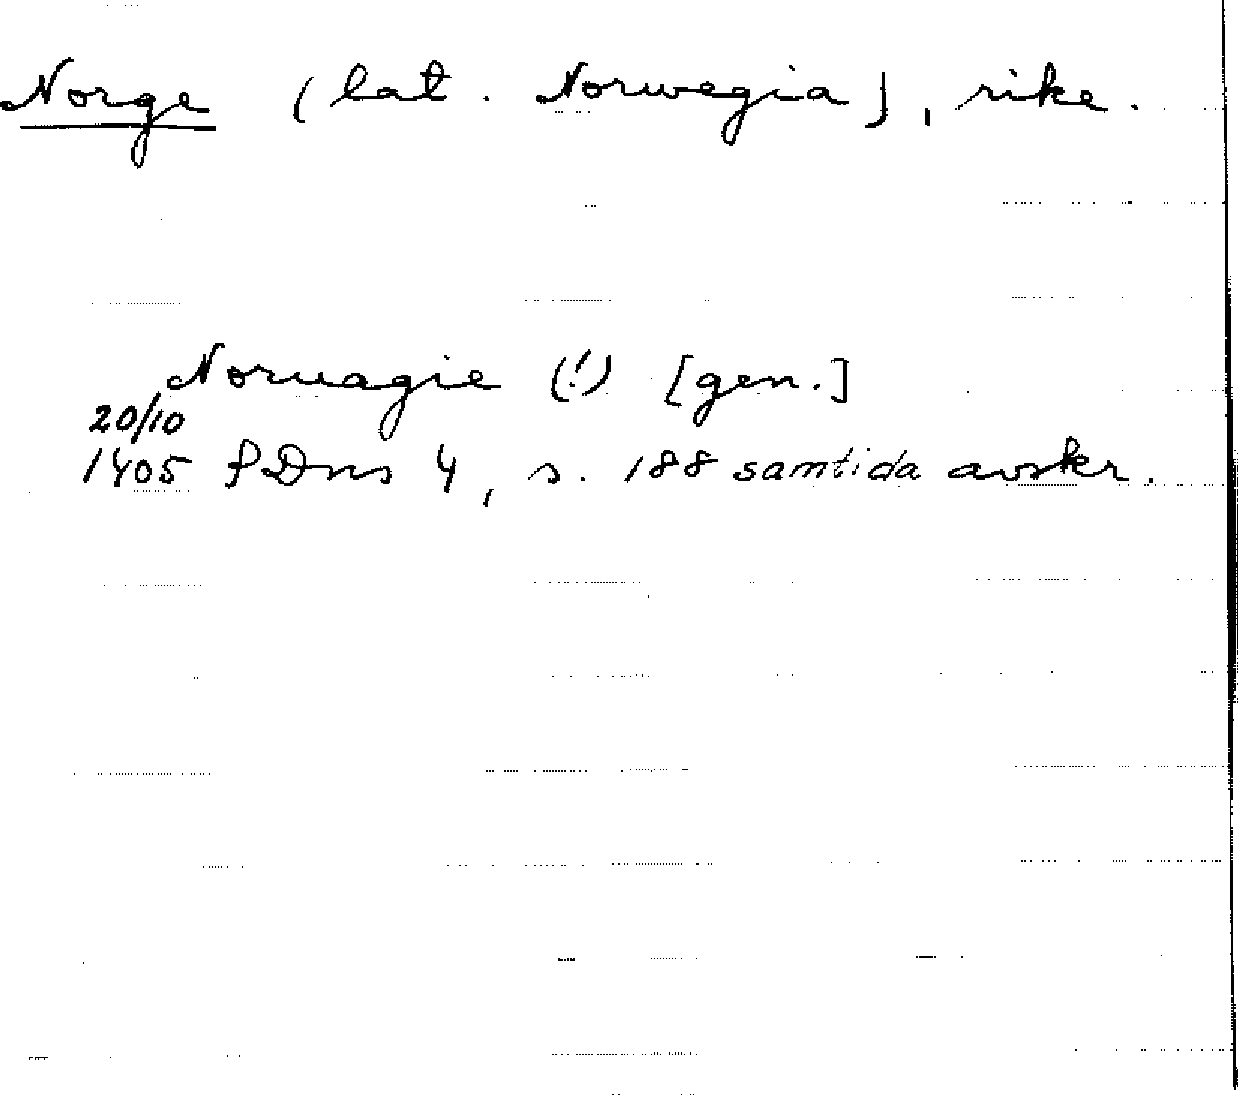 Norge (lat. Norwegia), rike.
Noruagie (!) [gen.]
20/10
1405 PDns 4, s. 188 samtida avskr.